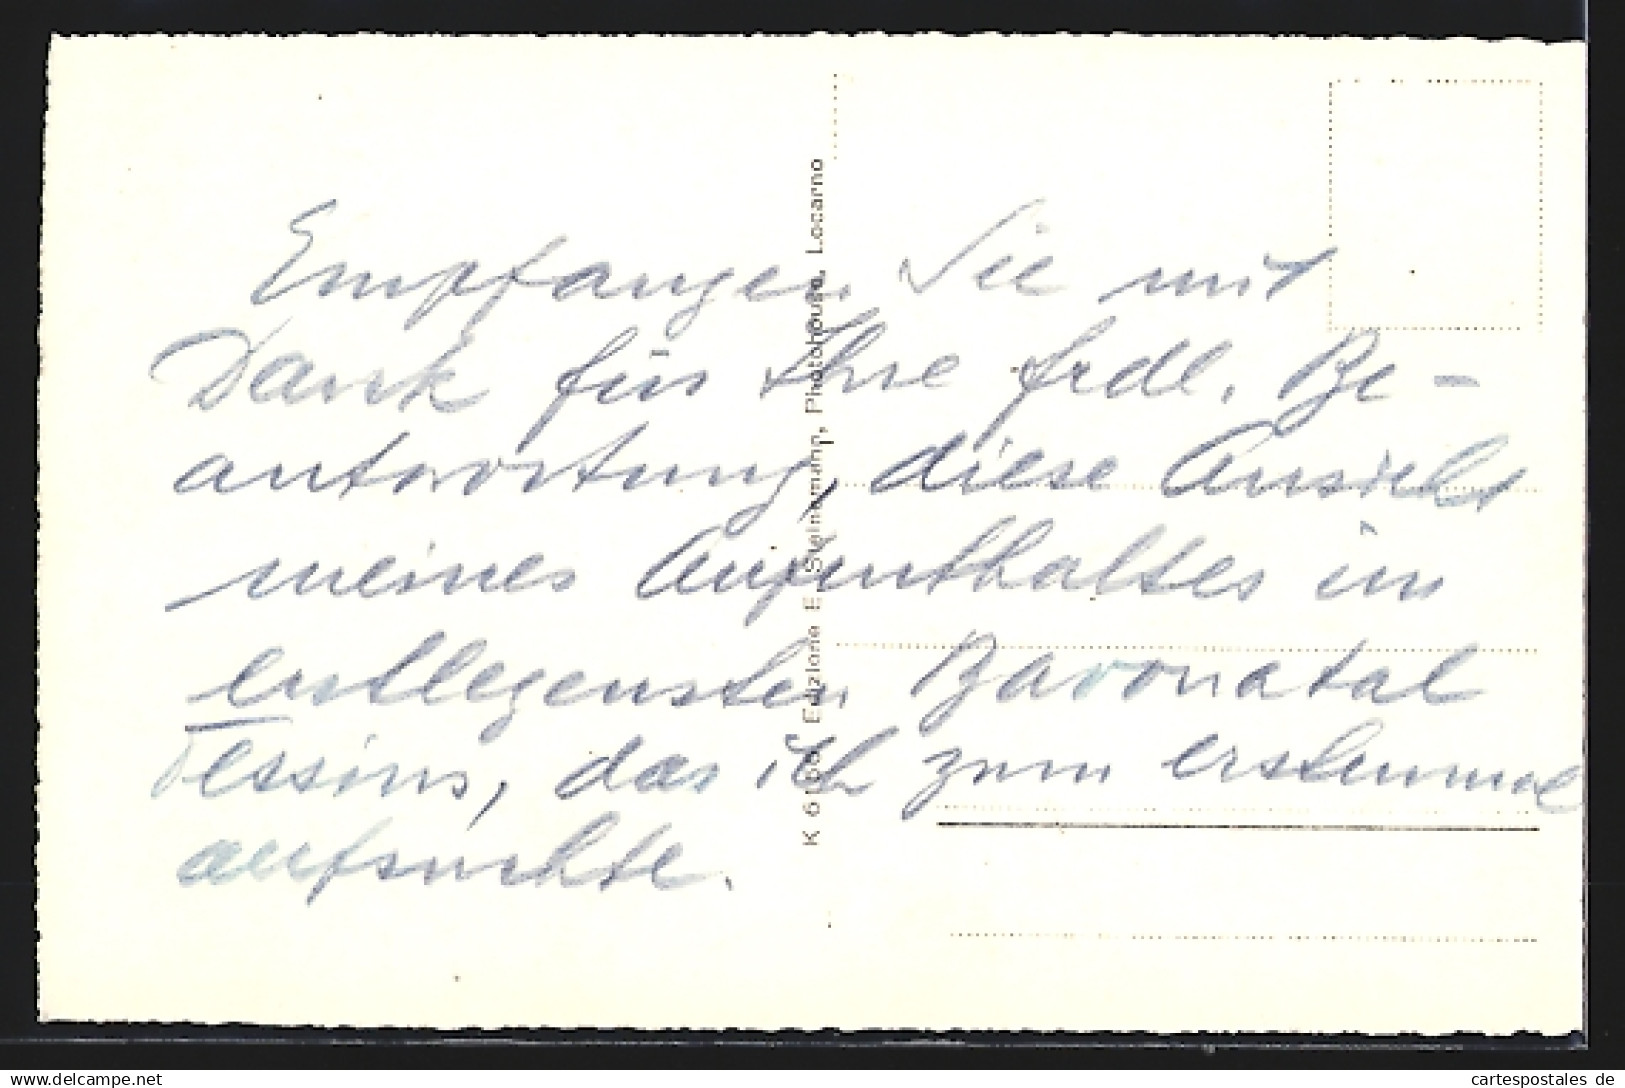 Empfangen Sie mit
Dank für Ihre frdl. Be-
antwortung, diese Ansicht
meines Aufenthaltes im
entlegensten Bavonatal
Tessins, das ich zum erstenmal
aufsuchte.
Edizione E. Steinemann, Photohouse, Locarno
cartespostales de